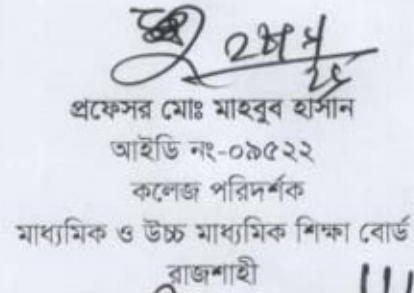 প্রফেসর মোঃ মাহবুব হাসান
আইডি নং-০৯৫২২
কলেজ পরিদর্শক
মাধ্যমিক ও উচ্চ মাধ্যমিক শিক্ষা বোর্ড
রাজশাহী